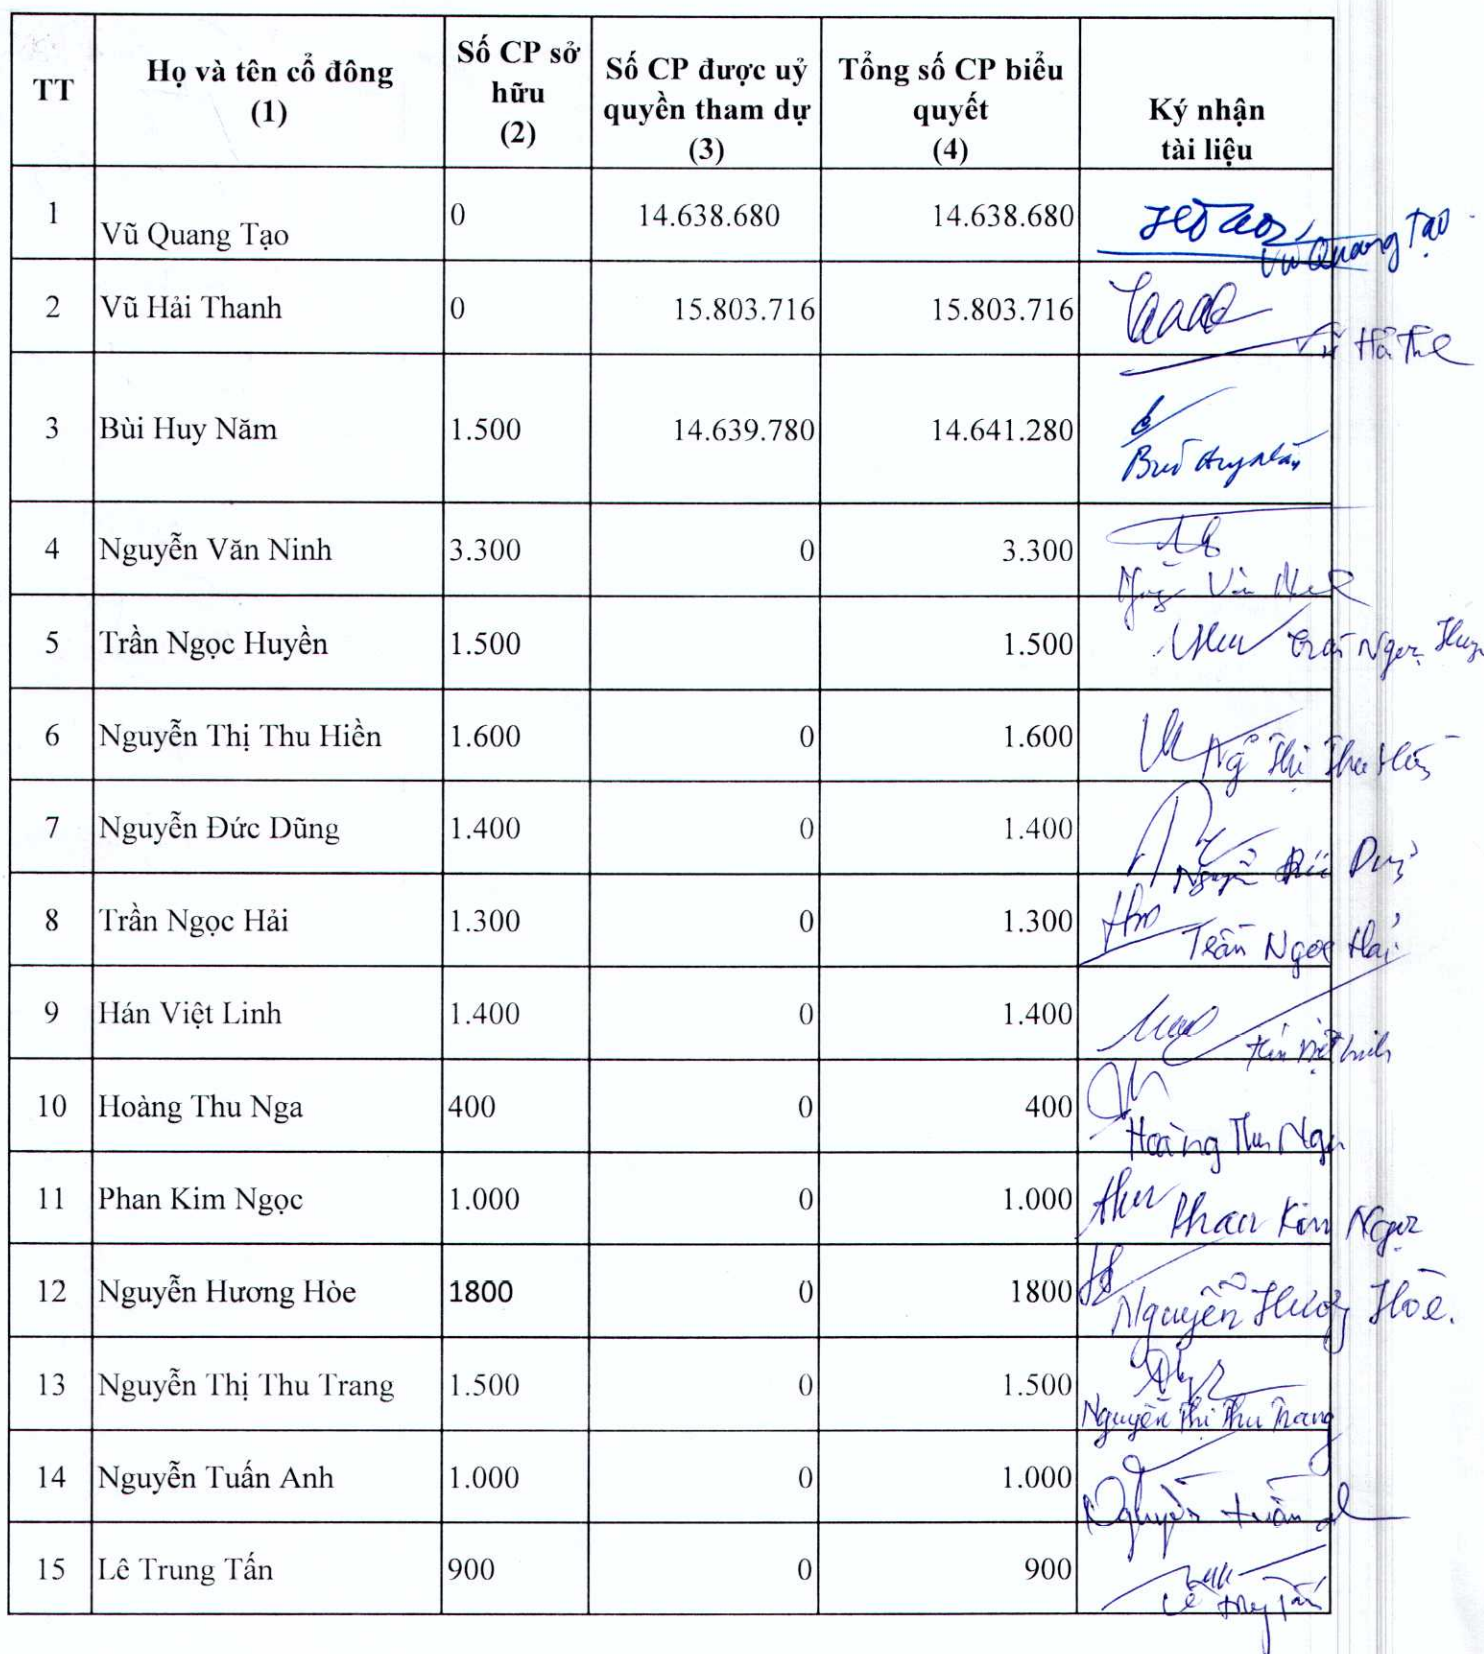 TT
Họ và tên cổ đông
(1)
Số CP sở
hữu
(2)
Số CP được uỷ
quyền tham dự
(3)
Tổng số CP biểu
quyết
(4)
Ký nhận
tài liệu
1 Vũ Quang Tạo 0 14.638.680 14.638.680
Vũ Quang Tạo
2 Vũ Hải Thanh 0 15.803.716 15.803.716
3 Bùi Huy Năm 1.500 14.639.780 14.641.280
Bùi Huy Năm
4 Nguyễn Văn Ninh 3.300 0 3.300
5 Trần Ngọc Huyền 1.500 1.500
Trần Ngọc
6 Nguyễn Thị Thu Hiền 1.600 0 1.600
Thị Thu Hiền
7 Nguyễn Đức Dũng 1.400 0 1.400
Nguyễn Đức Dũng
8 Trần Ngọc Hải 1.300 0 1.300
Trần Ngọc Hải
9 Hán Việt Linh 1.400 0 1.400
Hán Việt Linh
10 Hoàng Thu Nga 400 0 400
Hoàng Thu Nga
11 Phan Kim Ngọc 1.000 0 1.000
Phan Kim Ngọc
12 Nguyễn Hương Hòe 1800 0 1800
Nguyễn Hương Hòe.
13 Nguyễn Thị Thu Trang 1.500 0 1.500
Nguyễn Thị Thu Trang
14 Nguyễn Tuấn Anh 1.000 0 1.000
Nguyễn Tuấn
15 Lê Trung Tấn 900 0 900
Lê Trung Tấn